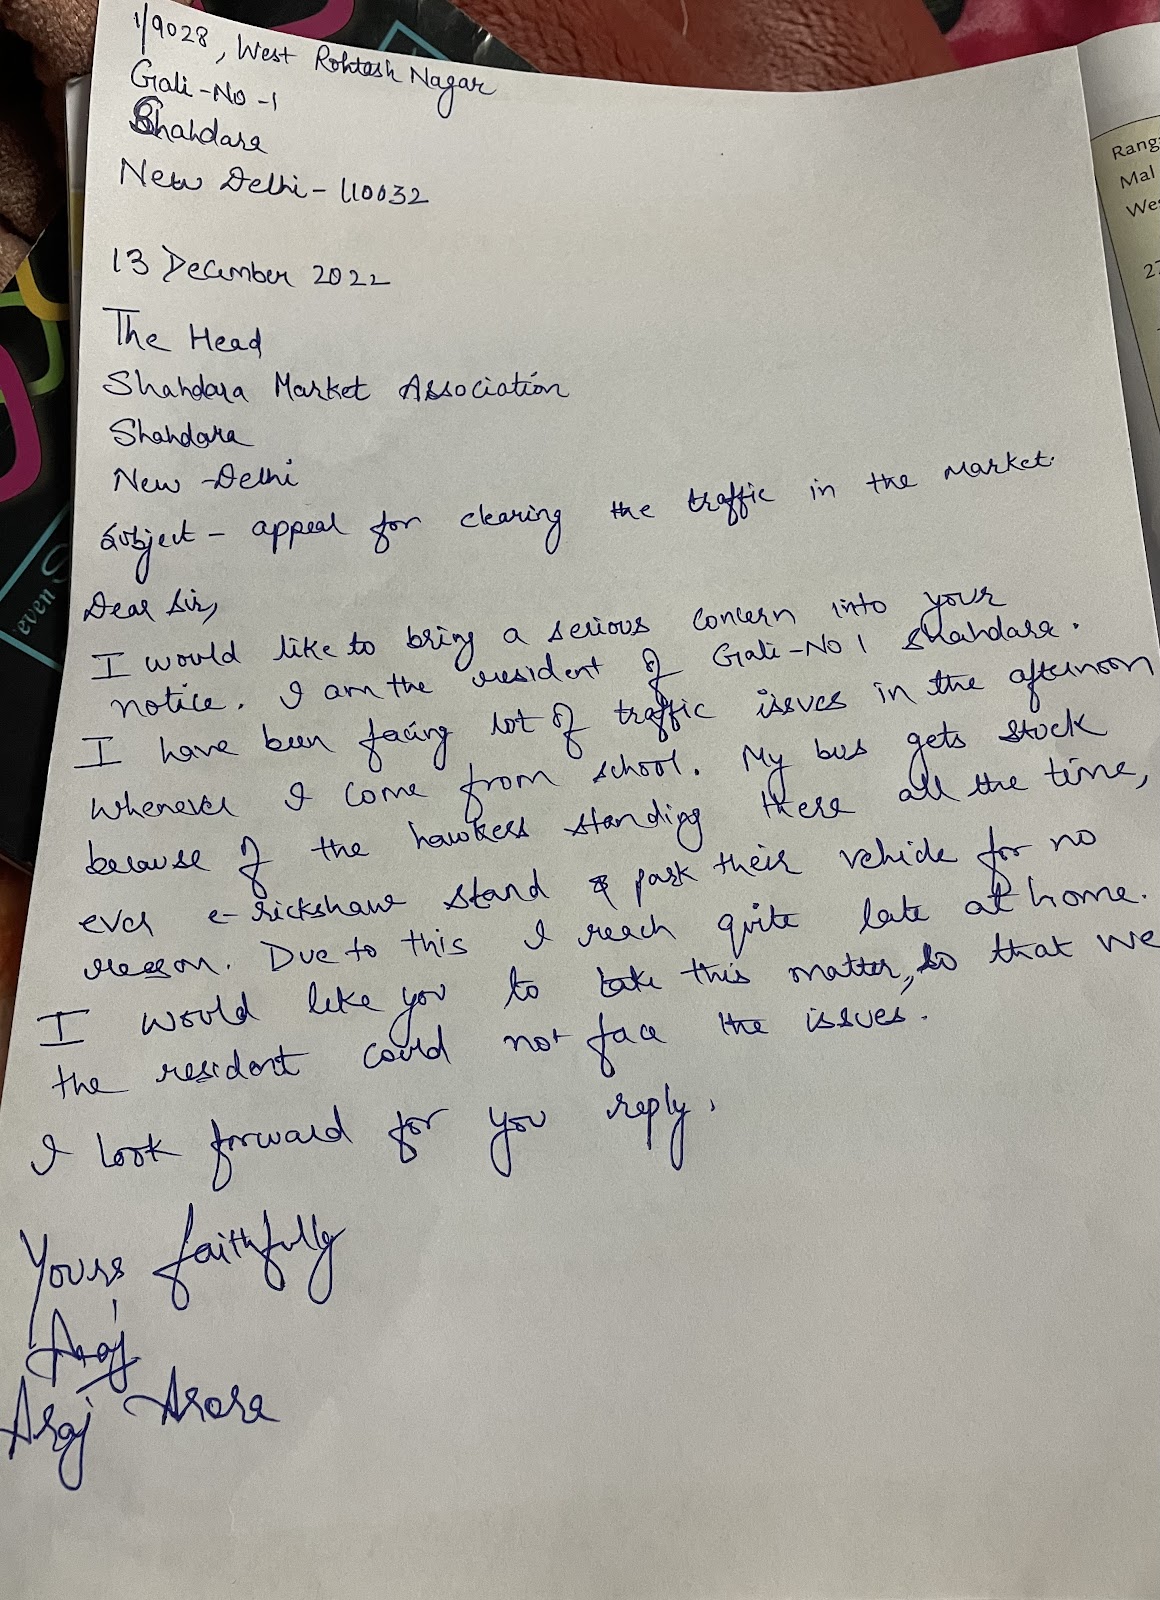 1/9028, West Rohtash Nagar
Gali-No-1
Shahdara
New Delhi-110032
13 December 2022
The Head
Shahdara Market Association
Shahdara
New-Delhi
Subject - appeal for clearing the traffic in the Market.
Dear Sir,
I would like to bring a serious concern into your
notice. I am the resident of Gali-No 1 Shahdara.
I have been facing lot of traffic issues in the afternoon
whenever I come from school. My bus gets stuck
because of the hawkers standing there all the time,
ever e-rickshaw stand & park their vehicle for no
reason. Due to this I reach quite late at home.
I would like you to take this matter, so that we
the resident could not face the issues.
I look forward for you reply.
Yours faithfully
Araj
Araj Arora
Rang
Mal
Wes
27
even